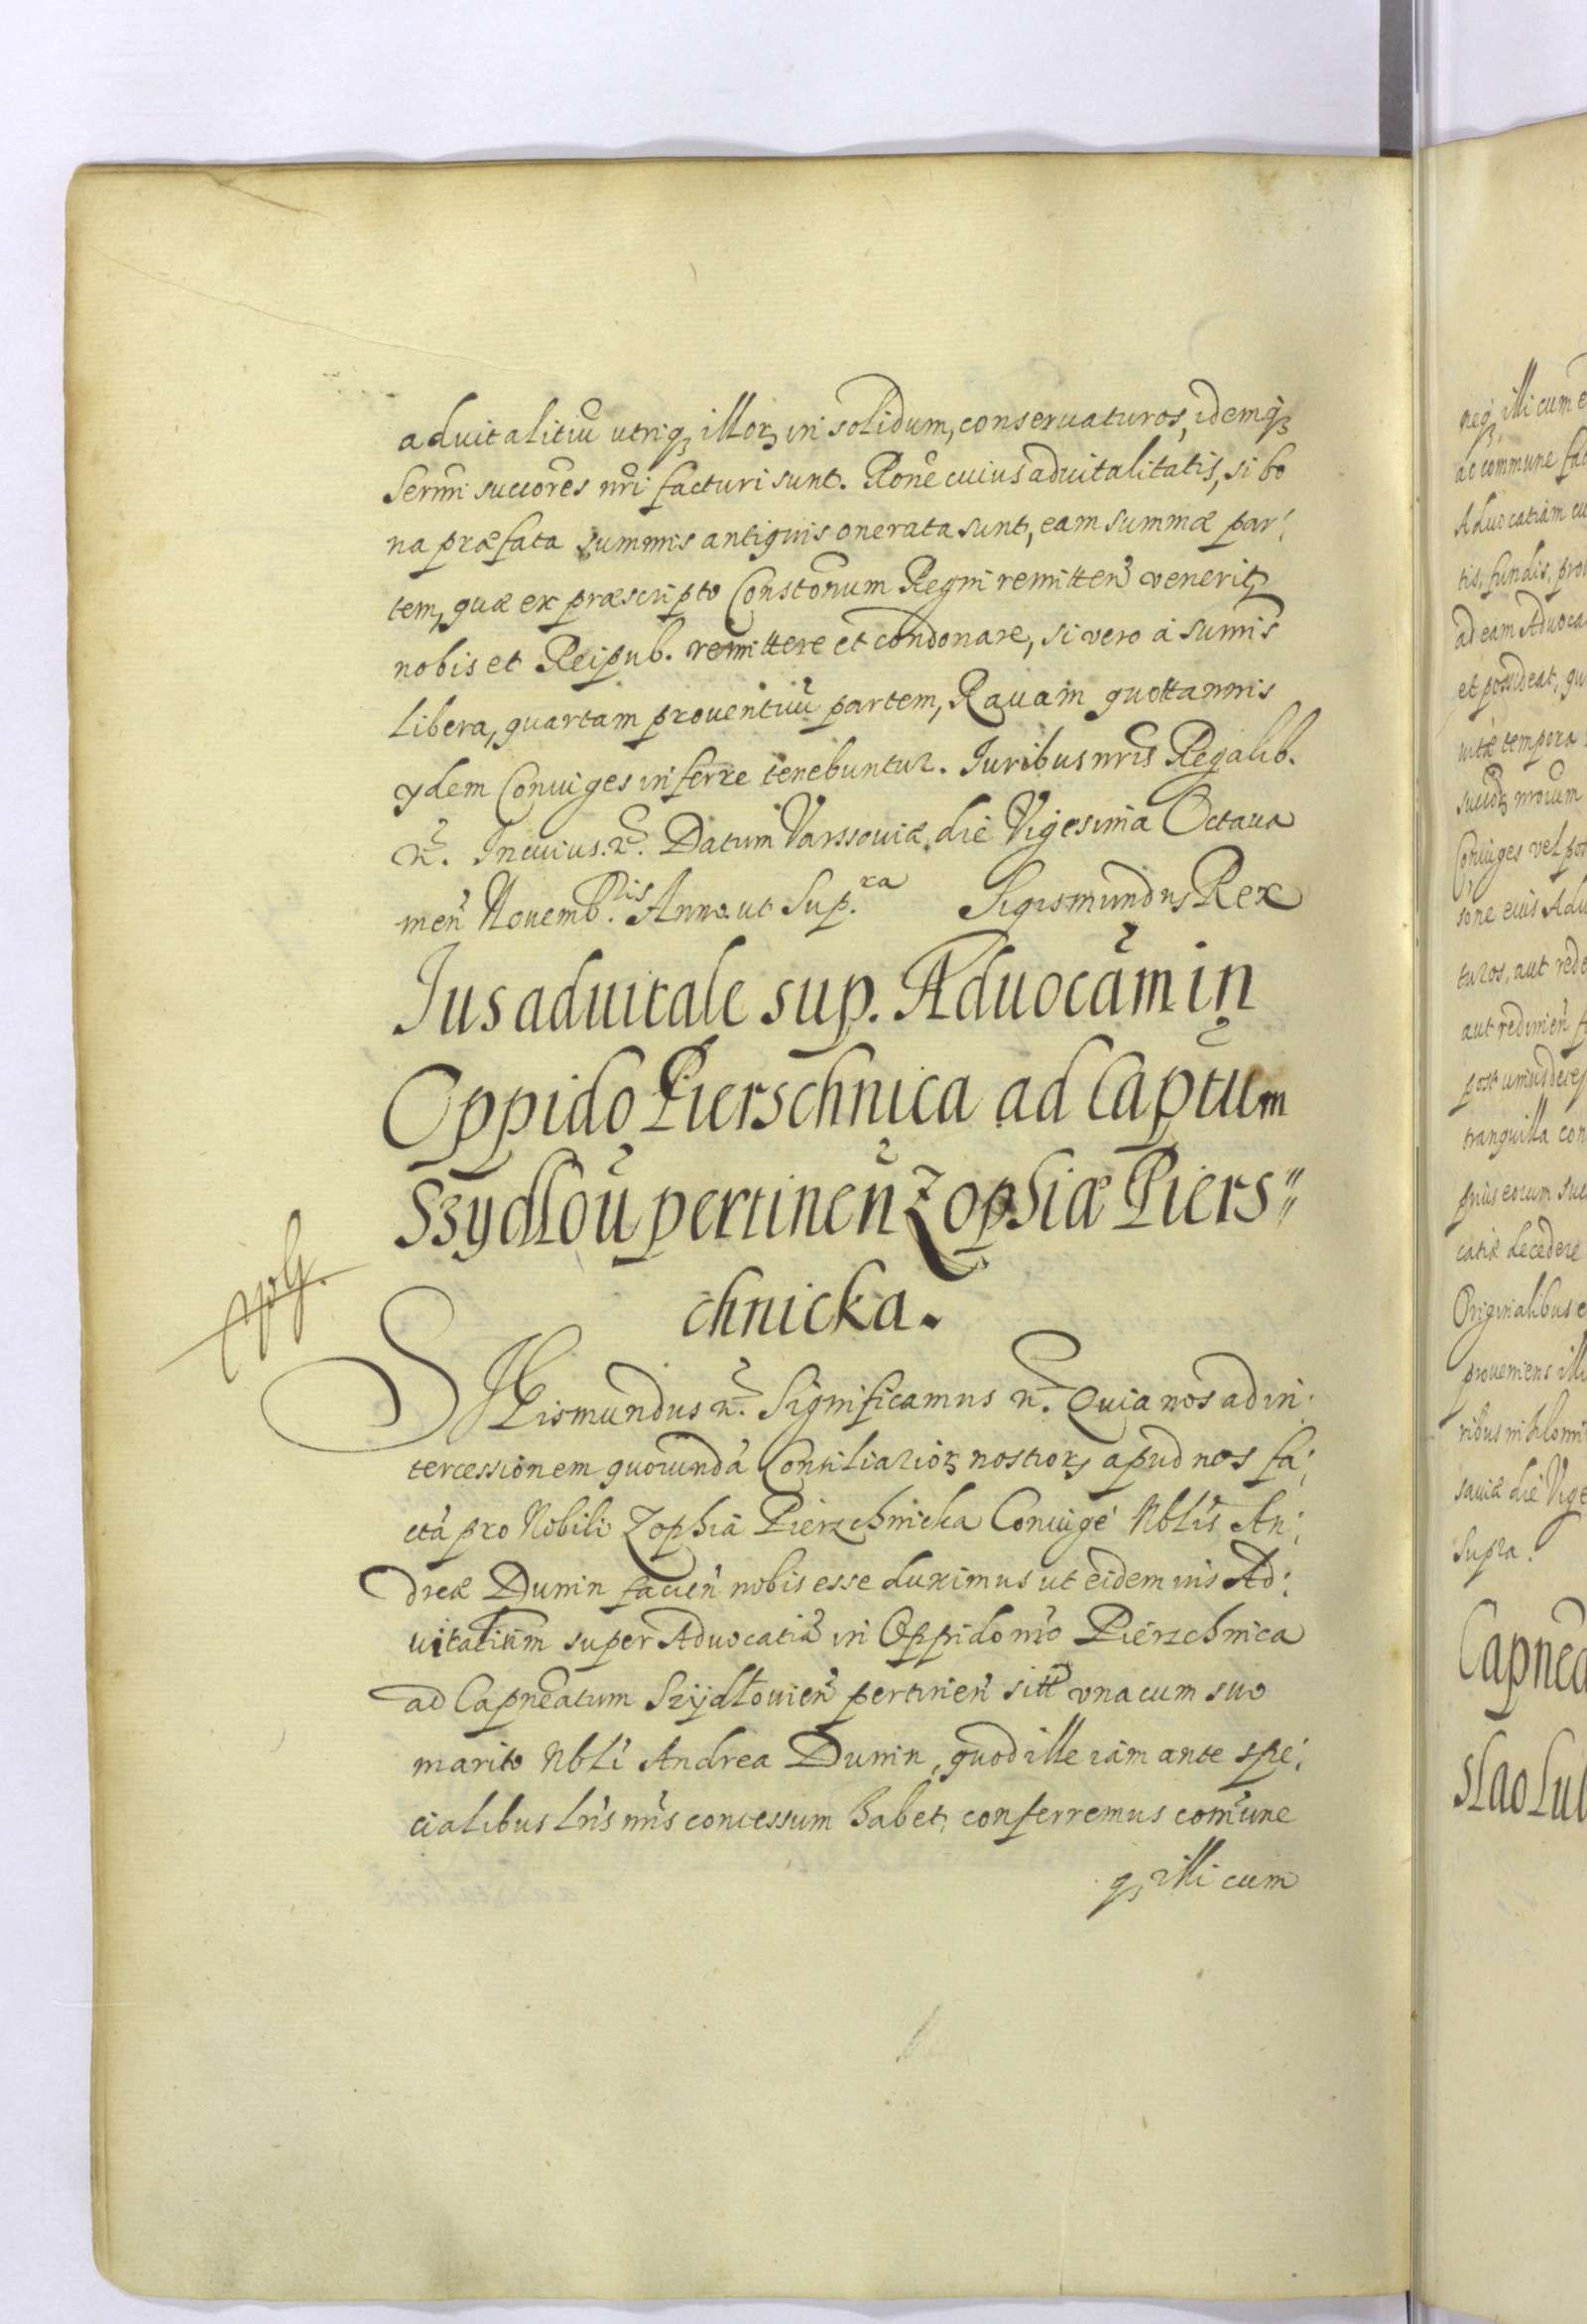 aduitalitiũ utriq3 illorz in solidum, conseruaturos, idemq3
Sermi succores nri facturi sunt. Rone cuius aduitalitatis, si bo
na præfata summis antiquis onerata sunt, eam summæ par:
tem, quæ ex præscripto Constonum Regni remitten venerit,
nobis et Reipub. remittere et condonare, si vero á sumis
libera, quartam prouentuũ partem, Rauam quottannis
ydem Coniuges inferre tenebuntur. Iuribus nris Regalib.
etc. In cuius. etc. Datum Varssouiæ, die Vigesima Octaua
men Nouemb.ris Anno. ut Sup.ra Sigismundus Rex
Ius aduitale sup. Aduocãm in
Oppido Pierschnica ad Captum
Szydloũ pertinen Zophiæ Piers"
chnicka.
SIGismundus etc. Significamus etc. Quia nos ad in:
tercessionem quorundã Consiliariorz nostrorz apud nos fa:
ctã pro Nobili Zophia Pierzchnicka Coniuge Nblis An:
dreæ Dunin facien nobis esse duximus ut eidem ius Ad:
uitalium super Aduocatiã in Oppido nro Pierzchnica
ad Capneatum Szÿdłouien pertinen sitt una cum suo
marito Nbli Andrea Dunin, quod ille iam ante spe:
cialibus lris nris concessum habet, conferremus comune
q3 illi cum
neq3 illi cum
ac commune
Aduocatiam
tis, fundis,
ad eam Aduoca
et possideat,
uitæ tempora
Coniuges vel
sone eius
turos, aut
aut redimen
tranquilla con
prius eorum
catiæ decedere
Originalibus
proueniens
sauiæ die Vige
Supra.
Capnea
slao Lub